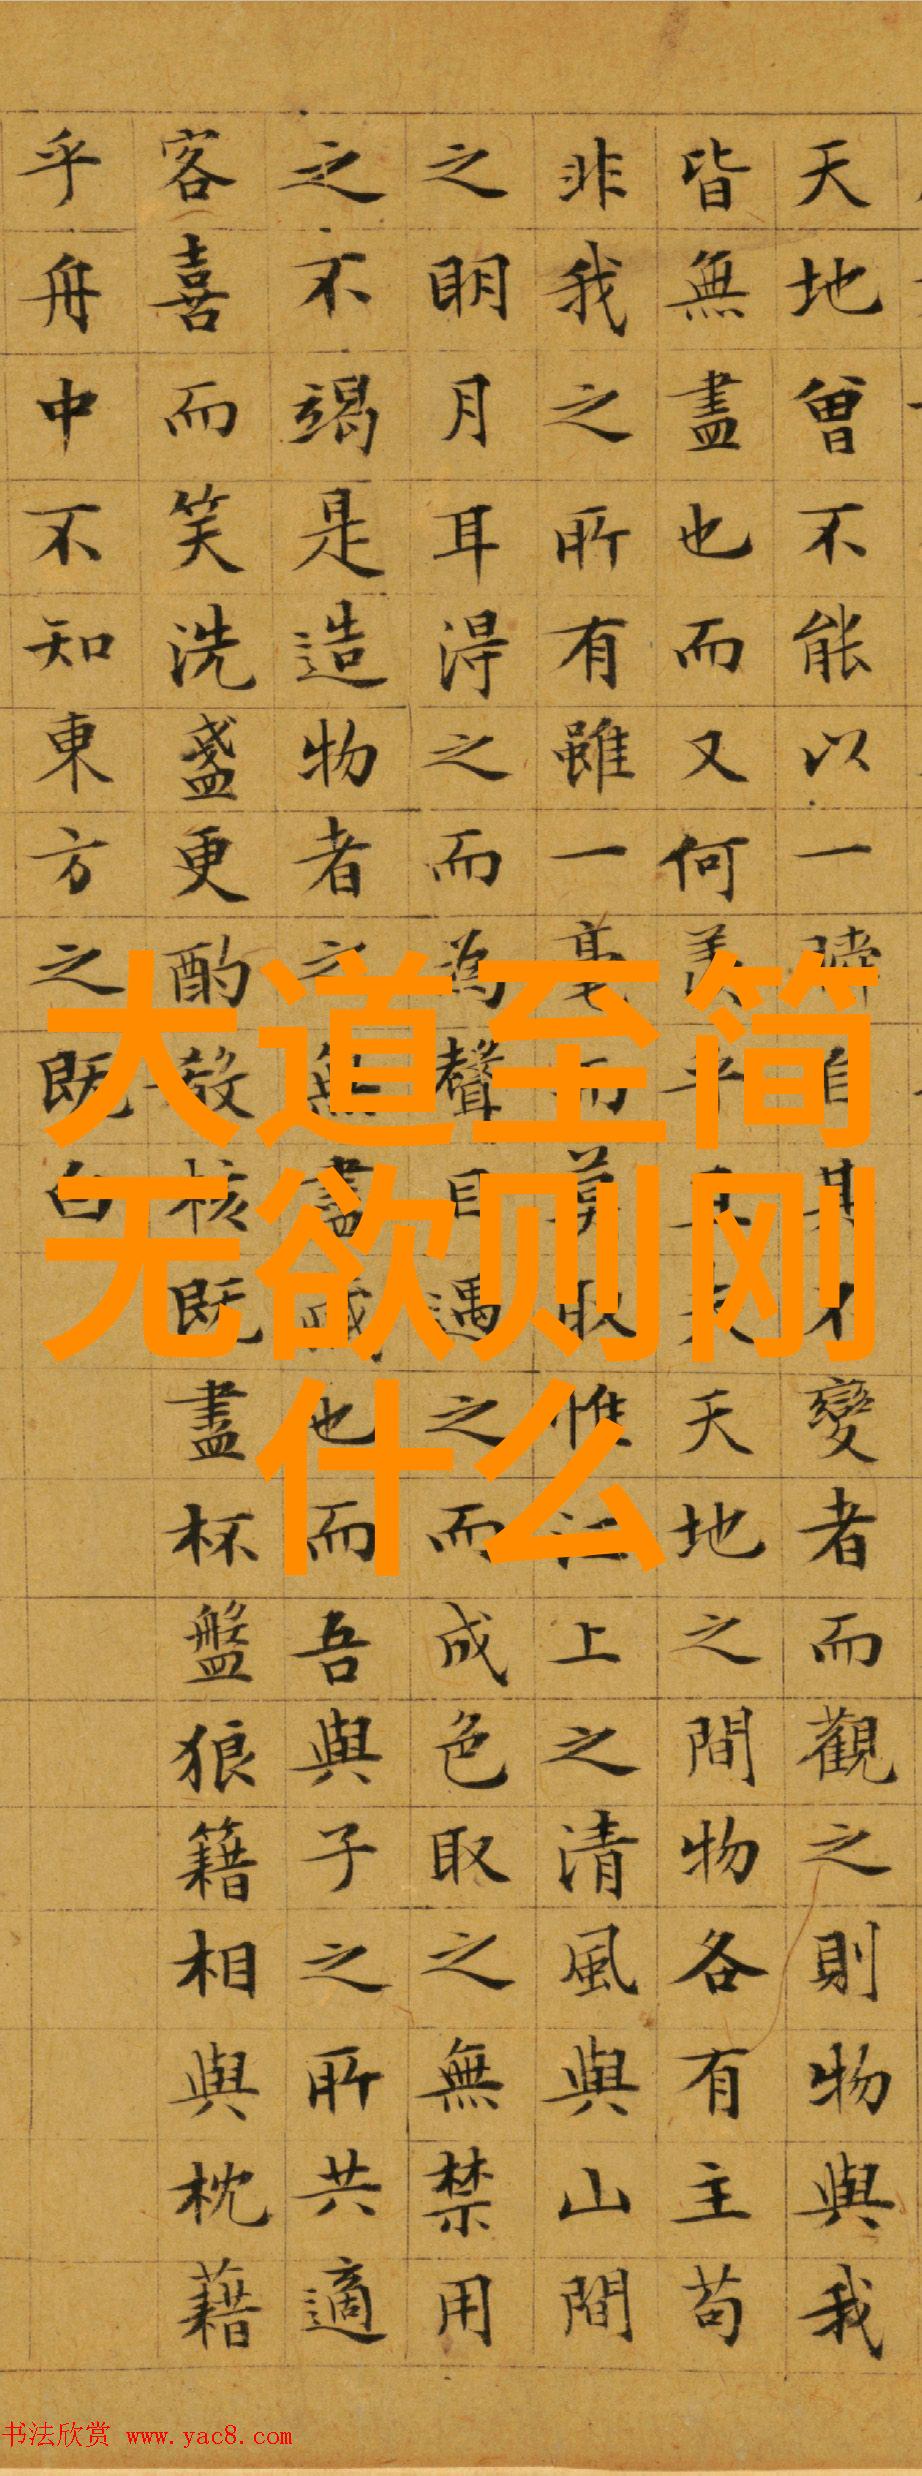 天地曾不能以一瞬自其不變者而觀之則物與我
皆無盡也而又何羨乎且夫天地之間物各有主苟
非我之所有雖一毫而莫取惟江上之清風與山間
之明月耳得之而為聲目遇之而成色取之無禁用
之不竭是造物者之無盡藏也而吾與子之所共適
客喜而笑洗盞更酌殽核既盡杯盤狼籍相與枕藉
乎舟中不知東方之既白
大道至简
无欲则刚
什么
书法欣赏 www.yac8.com